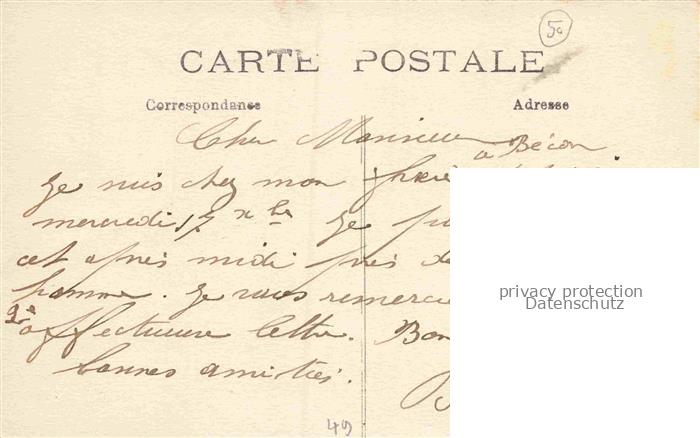 50
CARTE POSTALE
Correspondance Adresse
Cher Monsieur
à Bécon
Je suis chez mon frère
mercredi 17 xbre Je
cet après midi près de
femme. Je vous remercie
affectueuse lettre. Bon
bonnes amitiés.
49
privacy protection
Datenschutz